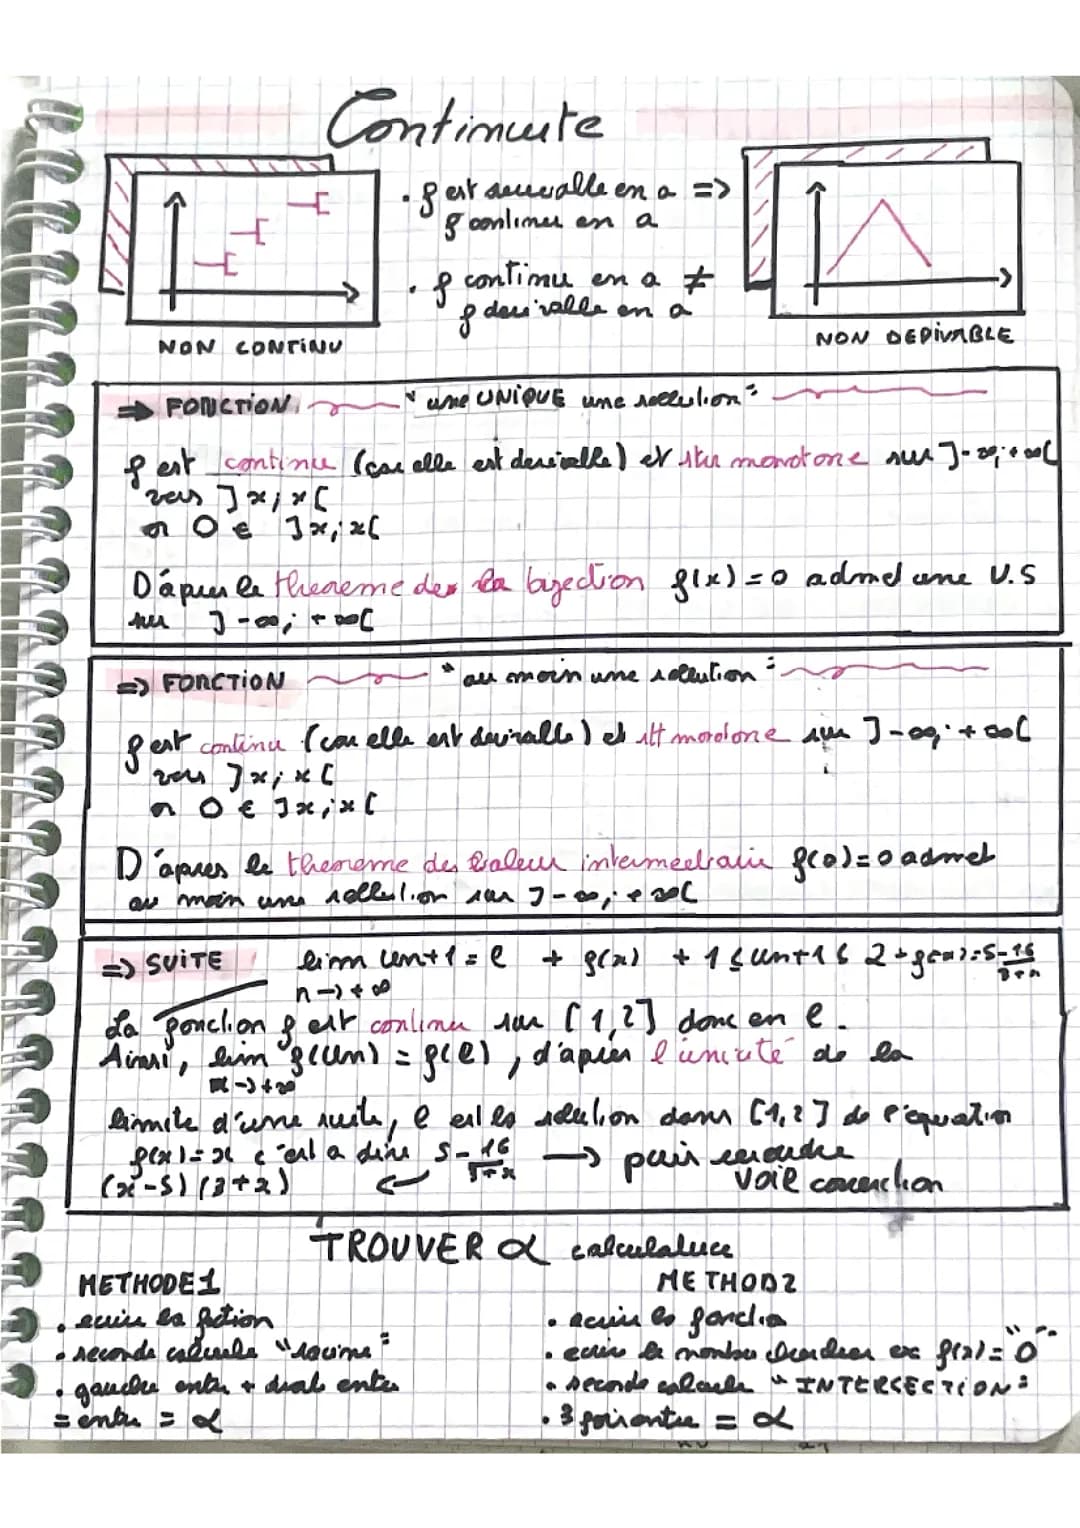 Continuite
. f est derivable en a =>
f continue en a
. f continu en a ≠
f derivable en a
NON CONTINU
NON DERIVABLE
=> FONCTION "une UNIQUE une sollution"
f est continue (car elle est derivable) et str monotone sur ]-∞;+∞[
vers ]x;x[
or 0 ∈ ]x;x[
D'apres le theoreme des la bijection f(x)=0 admet une U.S
sur ]-∞;+∞[
=> FONCTION "au moin une sollution"
f est continu (car elle est derivable) et stt monotone sur ]-∞;+∞[
vers ]x;x[
or 0 ∈ ]x;x[
D'apres le theoreme des valeur intermediaire f(0)=0 admet
au moin une sollution sur ]-∞;+∞[
=> SUITE lim Un+1 = l + f(x) + 1≤Un+1≤2 + f(x)=5-16/3+x
n->+∞
La fonction f est continu sur [1,2] donc en l.
Ainsi, lim f(Un) = f(l), d'après l'unicité de la
n->+∞
limite d'une suite, l est la solution dans [1,2] de l'equation
f(x)=x c'est a dire 5-16/3+x → puis resoudre
(x-5)(3+x) ← voir correction
TROUVER α calculatrice
METHODE 1
METHOD 2
. ecrire la fction
. seconde calcule "racine"
. gauche enter + droit enter
= enter = α
. ecrire la fonction
. ecrire le nombre chercher ex f(x)="0"
. seconde calcule "INTERSECTION"
. 3 fois enter = α